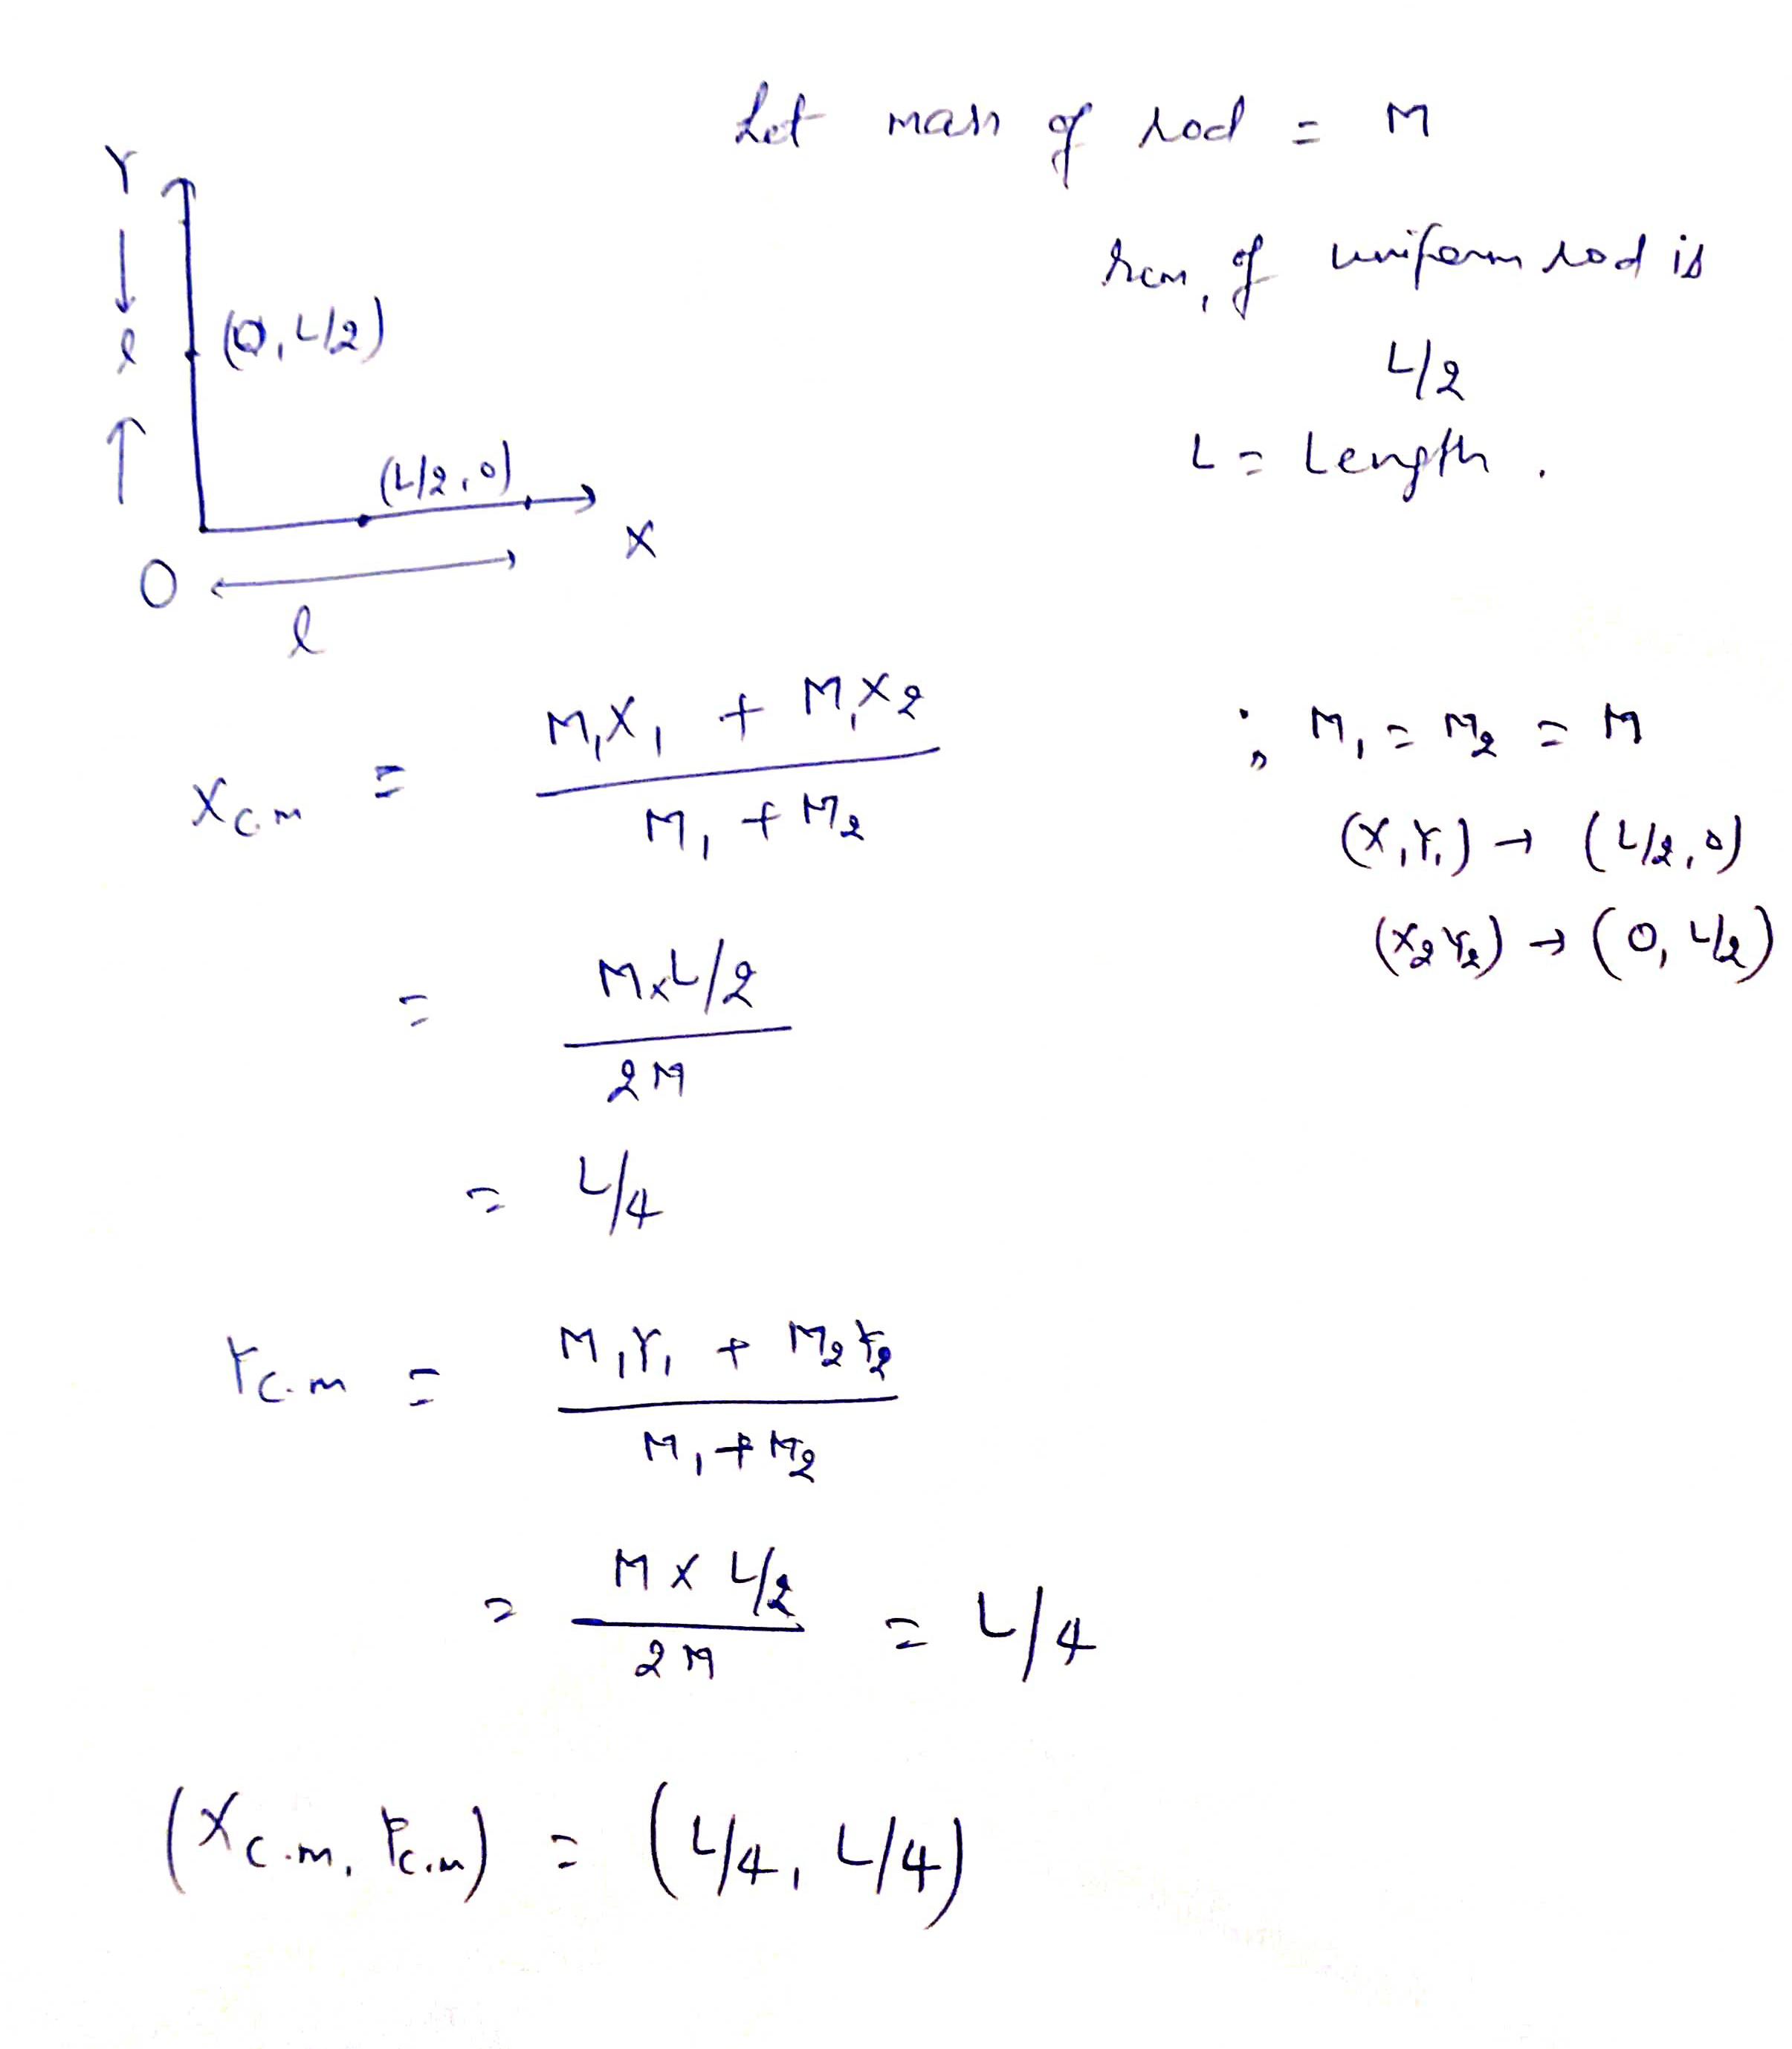 Let mass of rod = M
Y
rcm, of uniform rod is
(0, L/2)
l
L/2
(L/2, 0)
L = Length .
X
O
l
Xc.m = M₁X₁ + M₁X₂ / M₁ + M₂
; M₁ = M₂ = M
(X₁Y₁) → (L/2, 0)
(X₂Y₂) → (0, L/2)
= M×L/2 / 2M
= L/4
Yc.m = M₁Y₁ + M₂Y₂ / M₁ + M₂
= M × L/2 / 2M = L/4
(Xc.m, Yc.m) = (L/4, L/4)